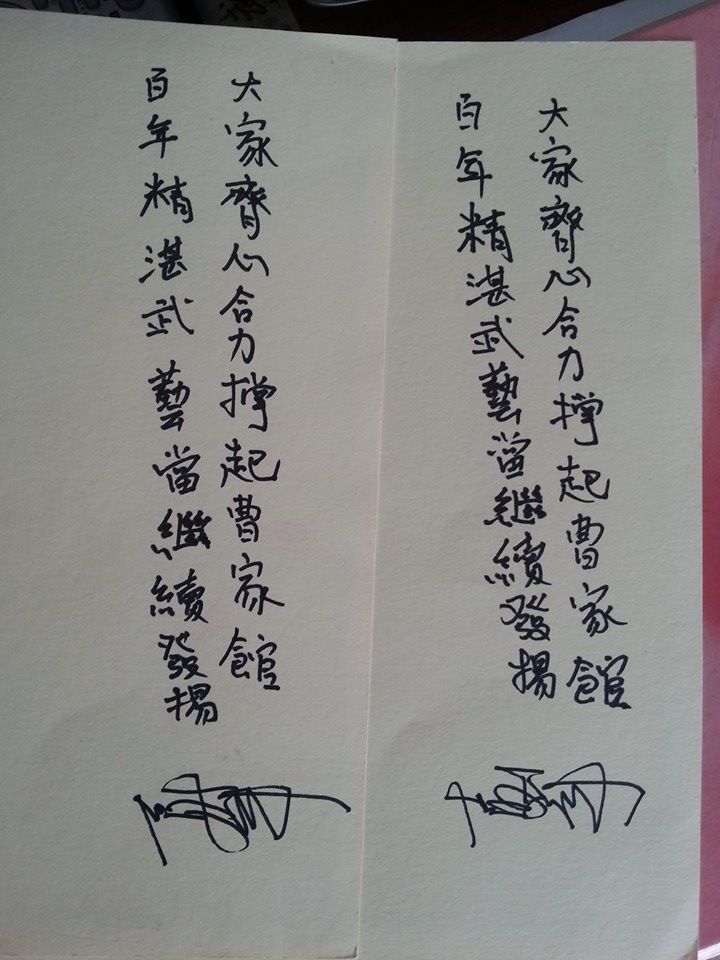 大家齊心合力撐起曹家館
百年精湛武藝當繼續發揚
大家齊心合力撐起曹家館
百年精湛武藝當繼續發揚